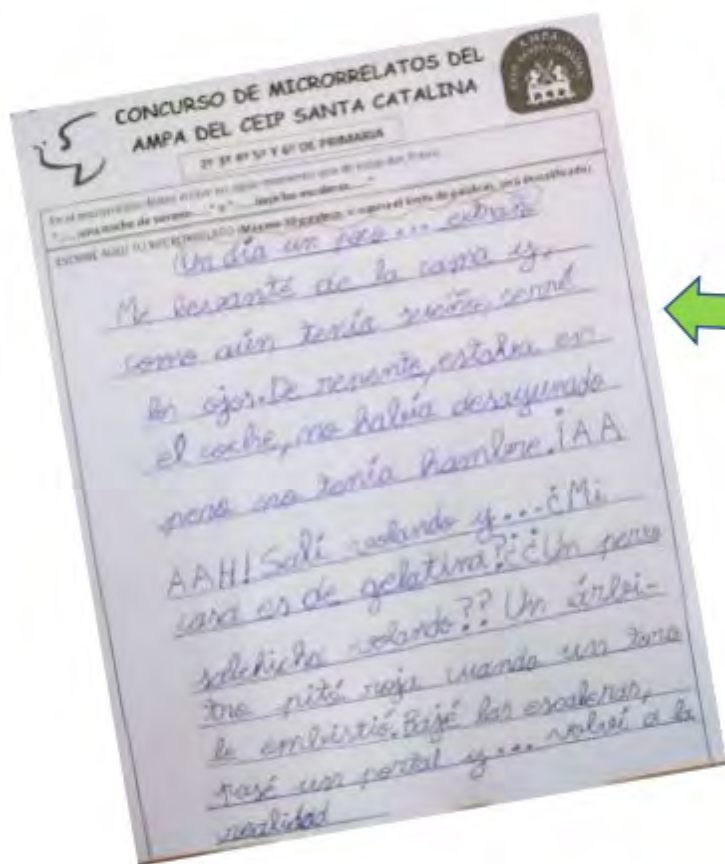 CONCURSO DE MICRORRELATOS DEL
AMPA DEL CEIP SANTA CATALINA
2º 3º 4º 5º Y 6º DE PRIMARIA
"... una noche de verano..." "... las escaleras..."
ESCRIBE AQUÍ TU MICRORRELATO
Un día un poco... extraño
Me levanté de la cama y,
como aún tenía sueño, cerré
los ojos. De repente, estaba en
el coche, no había desayunado
pero no tenía hambre. ¡AA
AAH! Salí volando y... ¿Mi
casa es de gelatina? ¿¿Un perro
salchicha volando?? Un árbi-
tro pitó roja cuando un toro
le embistió. Bajé las escaleras,
pasé un portal y... volví a la
realidad